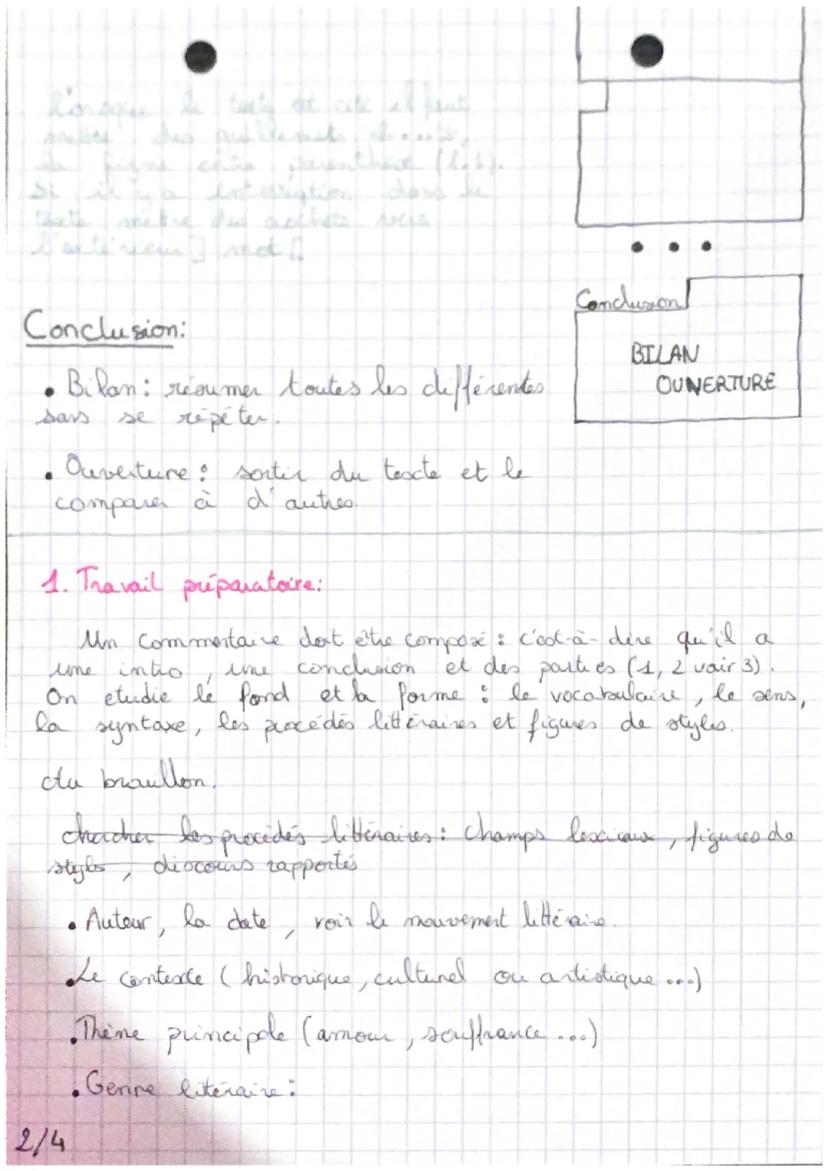 Lorsque le texte est cité il faut
mettre des guillemets
la ligne entre parenthèse (l.1).
Si il y a interruption dans le
texte mettre des crochets vers
l'extérieur ] mot [
Conclusion
BILAN
OUVERTURE
Conclusion:
• Bilan: résumer toutes les différentes
sans se répéter.
• Ouverture: sortir du texte et le
comparer à d'autres
1. Travail préparatoire:
Un commentaire doit être composé: c'est-à-dire qu'il a
une intro, une conclusion et des parties (1, 2 voir 3).
On etudie le fond et la forme: le vocabulaire, le sens,
la syntaxe, les procédés littéraires et figures de styles.
Au brouillon.
chercher les procédés littéraires: champs lexicaux, figures de
styles, discours rapportés
• Auteur, la date, voir le mouvement littéraire.
• Le contexte (historique, culturel ou artistique ...)
• Thème principale (amour, souffrance ...)
• Genre litéraire:
2/4